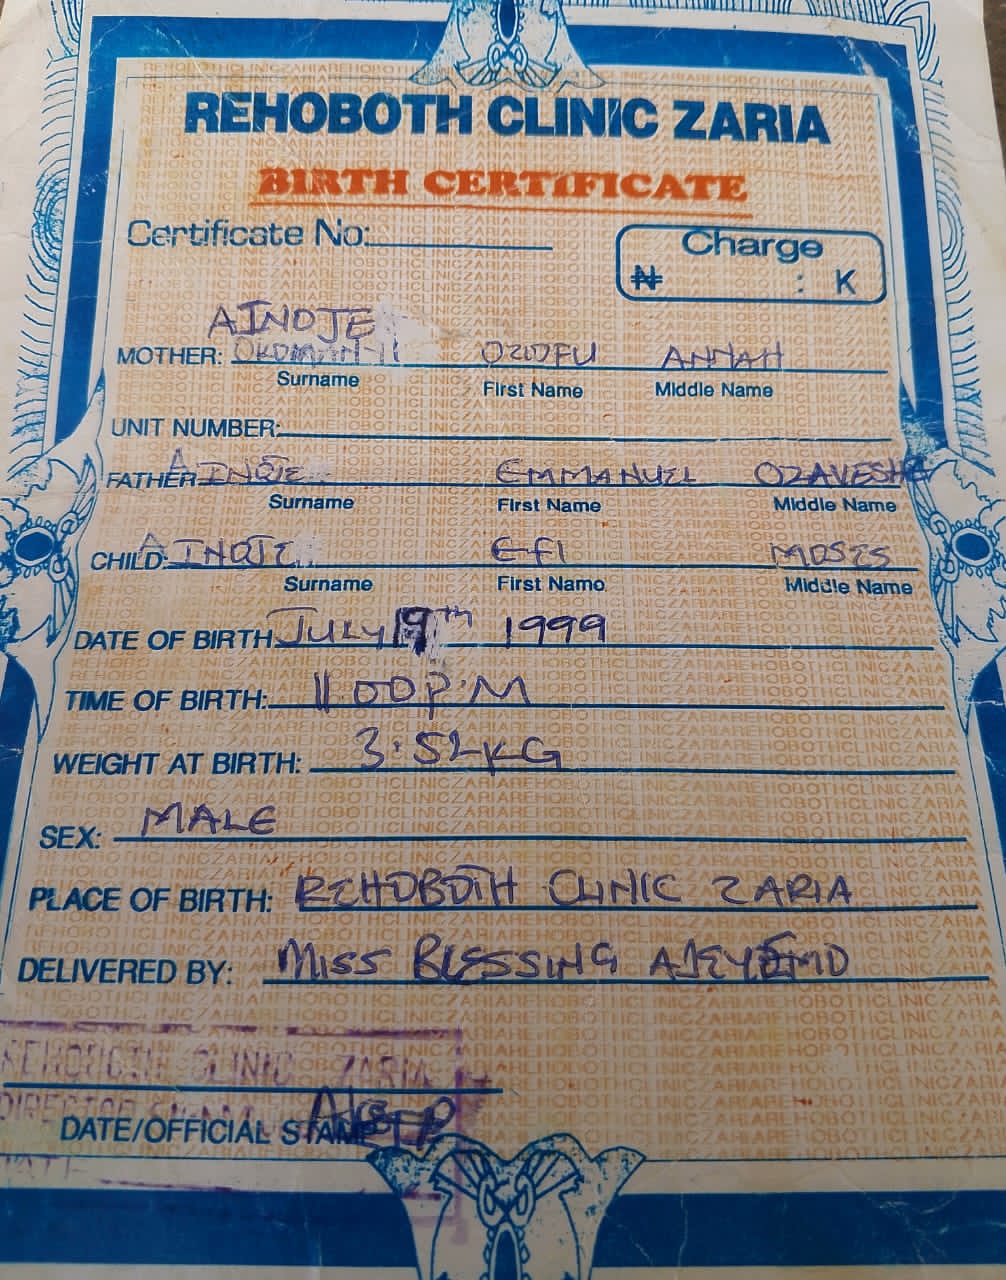 REHOBOTH CLINIC ZARIA
BIRTH CERTIFICATE
Certificate No:
Charge
₦ : K
AINOJE
MOTHER: OZIOFU ANNAH
Surname First Name Middle Name
UNIT NUMBER:
FATHER AINOJE EMMANUEL OZAVESHE
Surname First Name Middle Name
CHILD: AINOJE EFI MOSES
Surname First Name Middle Name
DATE OF BIRTH JULY 19th 1999
TIME OF BIRTH: 11 00 P.M
WEIGHT AT BIRTH: 3.52KG
SEX: MALE
PLACE OF BIRTH: REHOBOTH CLINIC ZARIA
DELIVERED BY: MISS BLESSING AJEYEMO
REHOBOTH CLINIC ZARIA
DATE/OFFICIAL STAMP